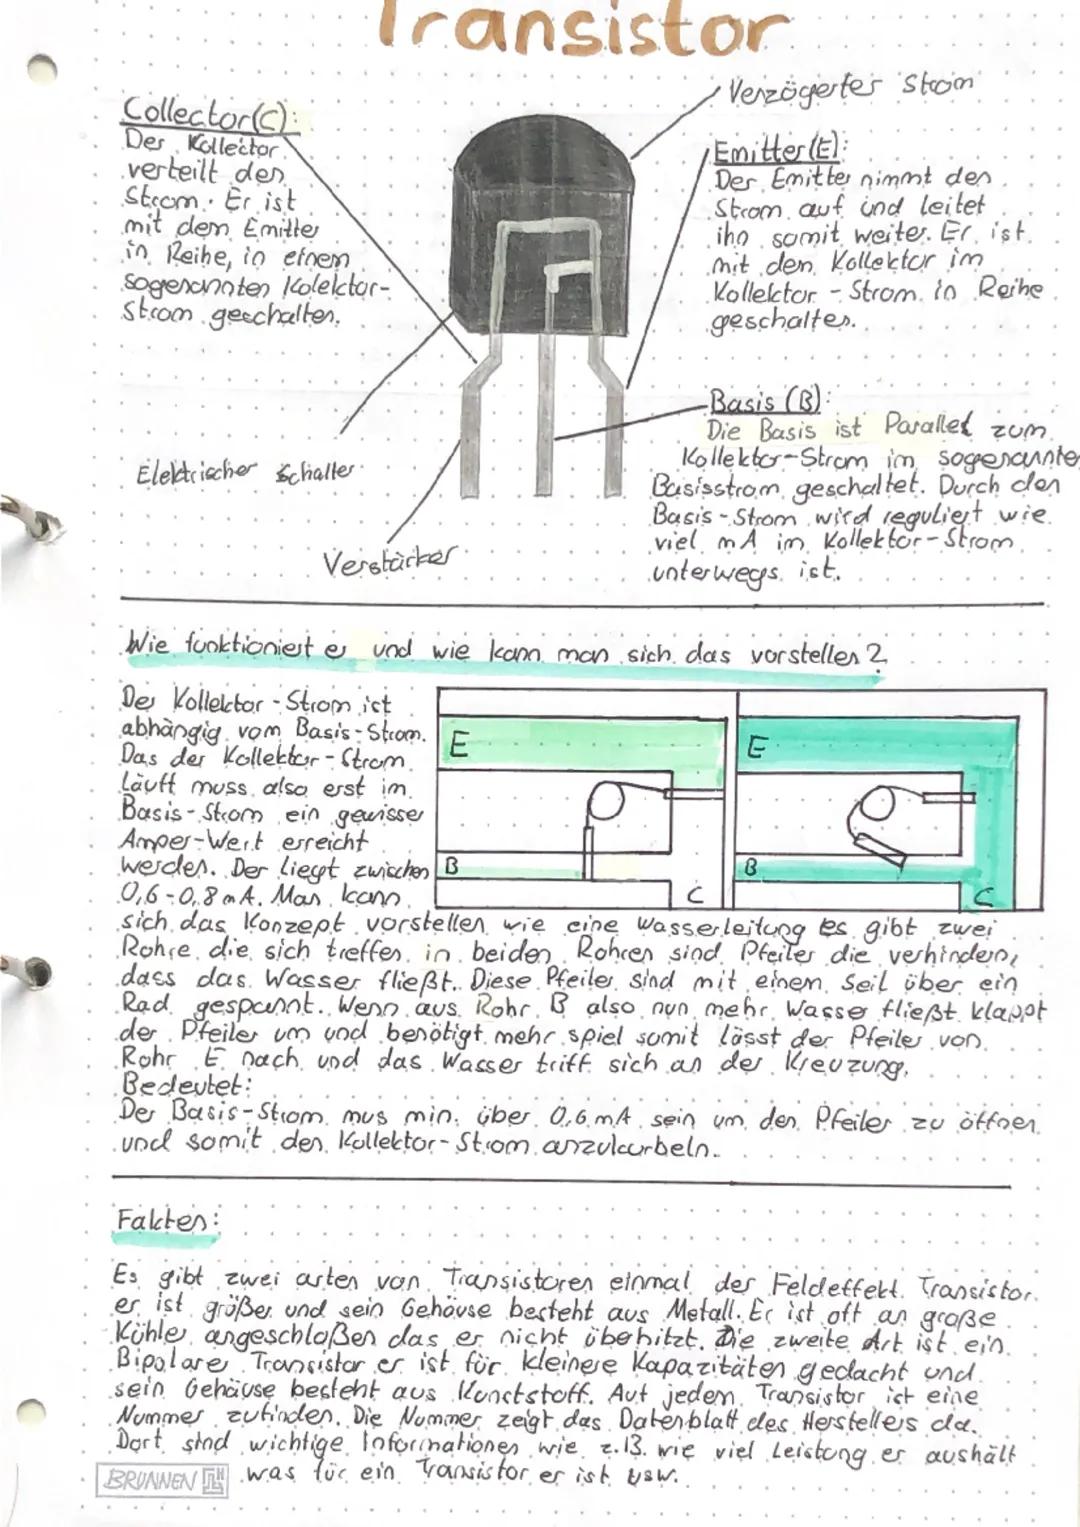 Transistor
Verzögerter Strom
Collector(C):
Der Kollector
verteilt den
Strom. Er ist
mit dem Emitter
in Reihe, in einem
sogenannten Kolektor-
Strom geschalten.
Emitter(E):
Der Emitter nimmt den
Strom auf und leitet
ihn somit weiter. Er ist
mit den Kollektor im
Kollektor - Strom in Reihe
geschalten.
Basis (B):
Die Basis ist Parallel zum
Kollektor-Strom im sogenannte
Basisstrom geschaltet. Durch den
Basis-Strom wird reguliert wie
viel mA im Kollektor-Strom
unterwegs ist.
Elektrischer Schalter
Verstärker
Wie funktioniert er und wie kann man sich das vorstellen?
Der Kollektor-Strom ist
abhängig vom Basis-Strom.
Das der Kollektor-Strom
läuft muss also erst im
Basis-Strom ein gewisser
Amper-Wert erreicht
werden. Der liegt zwischen
0,6-0,8mA. Man kann
sich das Konzept vorstellen wie eine Wasserleitung es gibt zwei
Rohre die sich treffen in beiden Rohren sind Pfeiler die verhindern,
dass das Wasser fließt. Diese Pfeiler sind mit einem Seil über ein
Rad gespannt. Wenn aus Rohr B also nun mehr Wasser fließt klappt
der Pfeiler um und benötigt mehr spiel somit lässt der Pfeiler von
Rohr E nach und das Wasser triff sich an der Kreuzung.
Bedeutet:
Der Basis-Strom mus min. über 0,6 mA sein um den Pfeiler zu öffnen
und somit den Kollektor-Strom anzukurbeln.
E
B
C
E
B
C
Fakten:
Es gibt zwei arten von Transistoren einmal der Feldeffekt Transistor
er ist größer und sein Gehäuse besteht aus Metall. Er ist oft an große
Kühler angeschloßen das er nicht überhitzt. Die zweite Art ist ein
Bipolarer Transistor er ist für kleinere Kapazitäten gedacht und
sein Gehäuse besteht aus Kunststoff. Auf jedem Transistor ist eine
Nummer zufinden. Die Nummer zeigt das Datenblatt des Herstellers da.
Dort sind wichtige Informationen wie z.B. wie viel Leistung er aushält
was für ein Transistor er ist usw.
BRUNNEN